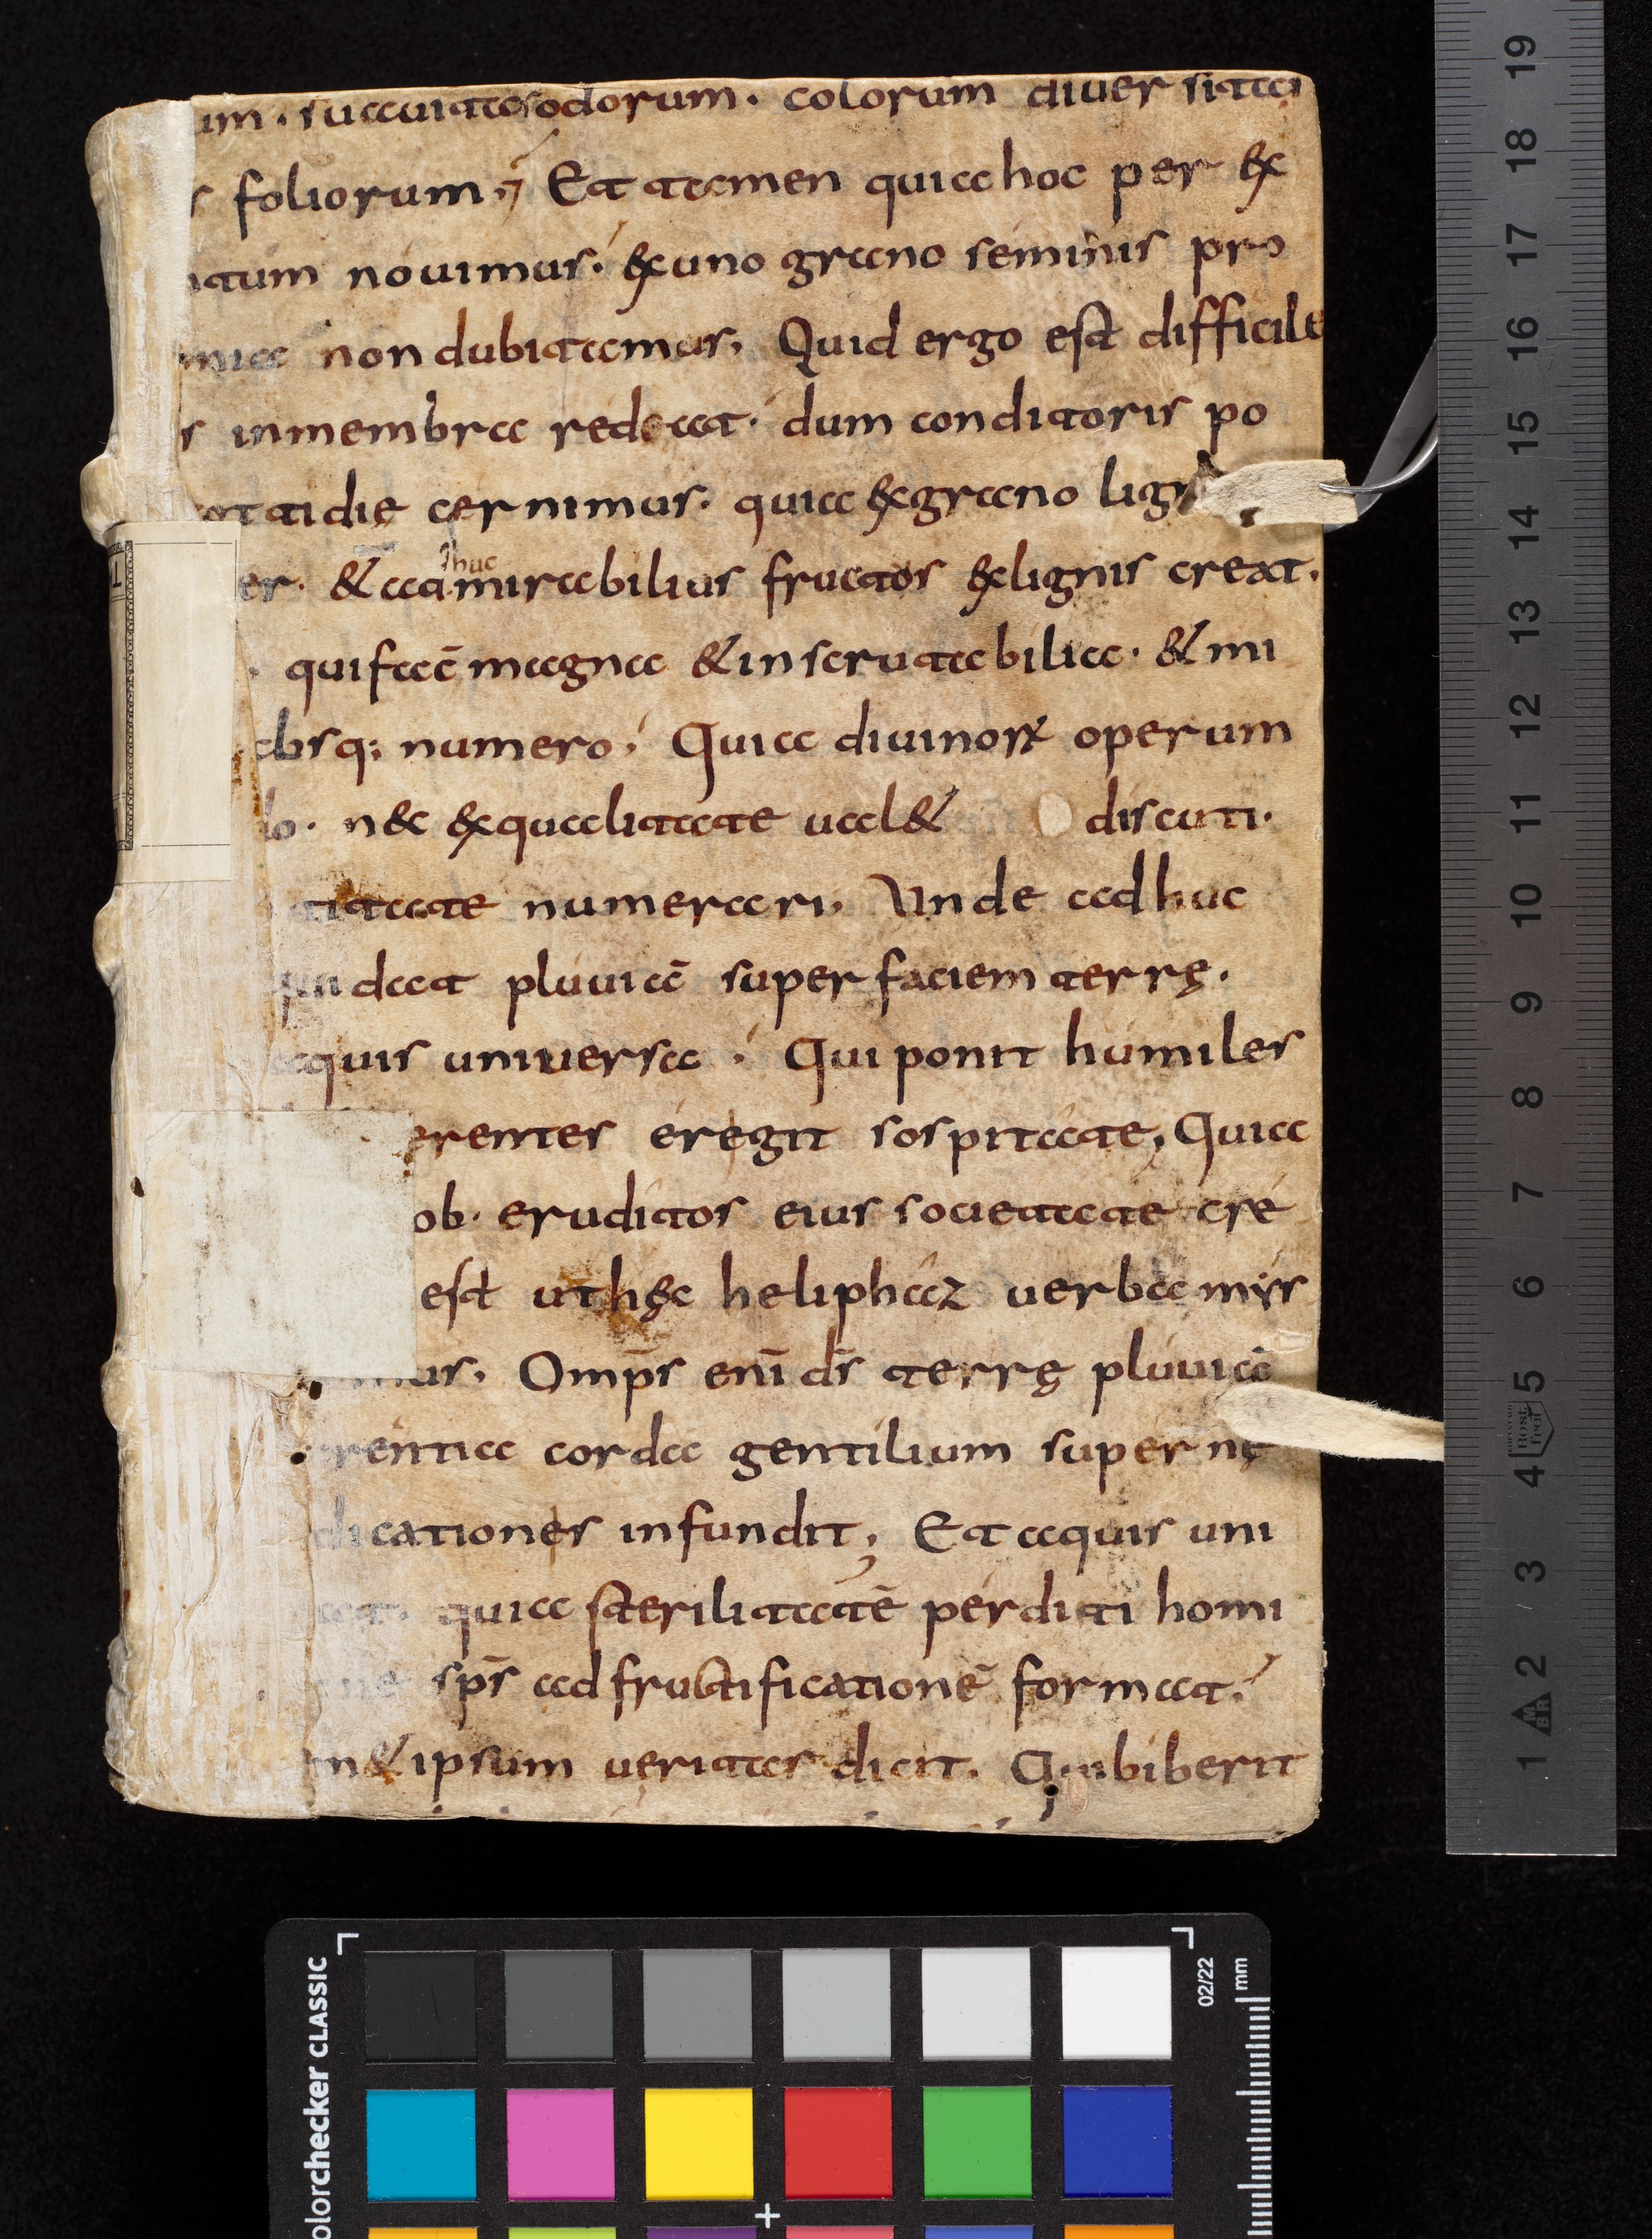 um. suauitas odorum. colorum diuersita
s foliorum; Et tamen quia hoc per ex
ntum nouimus. ex uno grano seminis pro
mia non dubitamus. Quid ergo est difficile
s inmembra redeat. dum conditoris po
cottidie cernimus. quia ex grano lig
er. & adhuc mirabilius fructos ex lignis creat.
. qui facē magna & inscrutabilia. & mi
absq; numero. Quia diuinoꝝ operum
do. nec ex qualitate ual& discuti.
titate numerari. Unde adhuc
qui dat pluuiā super faciem terrę.
aquis uniuersa. Qui ponit humiles
erentes eregit sospitate, Quia
ob. eruditos eius societate cre
est ut hęc heliphaz uerba mys
mus. Omp̄s enī ds̄ terrę pluuiā
rentia corda gentilium supernę
dicationes infundit; Et aquis uni
at. quia sterilitatē perditi homi
ne sp̄s ad fructificationē format.
m & ipsum ueritas dicit. Qui biberit
19
18
17
16
15
14
13
12
11
10
9
8
7
6
5
4
3
2
1
MBR
Rost frei
olorchecker CLASSIC
02/22
mm